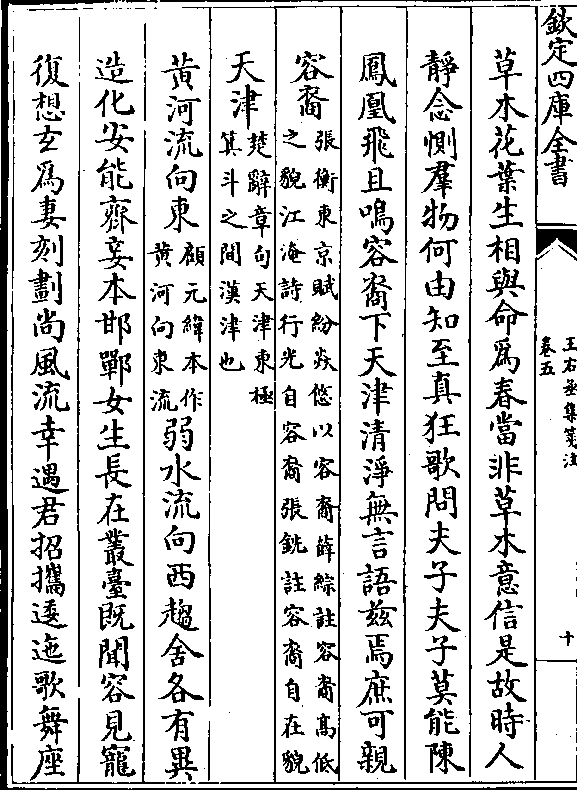 欽定四庫全書
王右丞集箋注
卷五
十
草木花葉生相與命爲春當非草木意信是故時人
靜念惻羣物何由知至真狂歌問夫子夫子莫能陳
鳳凰飛且鳴容裔下天津清淨無言語兹焉庶可親
容裔
張衡東京賦紛焱悠以容裔薛綜註容裔髙低
之貌江淹詩行光自容裔張銑註容裔自在貌
天津
楚辭章句天津東極
箕斗之間漢津也
黄河流向東
顧元緯本作
黄河向東流
弱水流向西趨舍各有異
造化安能齊妾本邯鄲女生長在叢臺既聞容見寵
復想玄爲妻刻劃尚風流幸遇君招攜逶迤歌舞座